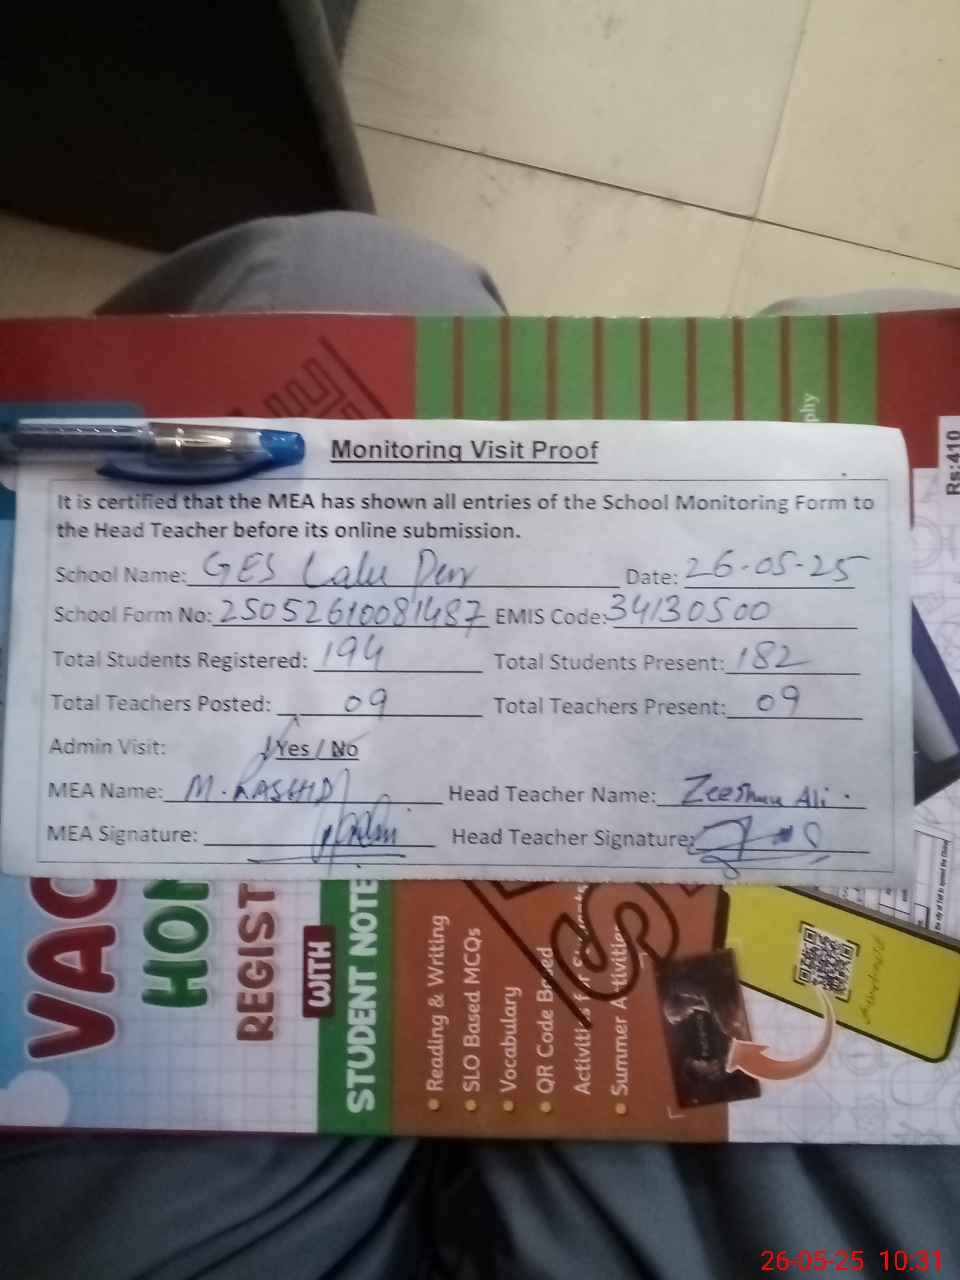 Monitoring Visit Proof
It is certified that the MEA has shown all entries of the School Monitoring Form to
the Head Teacher before its online submission.
School Name: GES Lalu Date: 26-05-25
School Form No: 25052610081487 EMIS Code: 34130500
Total Students Registered: 194 Total Students Present: 182
Total Teachers Posted: 09 Total Teachers Present: 09
Admin Visit: Yes / No
MEA Name: M. RASHID Head Teacher Name: Zeeshan Ali.
MEA Signature: Head Teacher Signature:
REGIST
WITH
STUDENT NOTE
• Reading & Writing
• SLO Based MCQs
• Vocabulary
• QR Code Based
• Summer Activities
Rs:410
phy
26-05-25 10:31